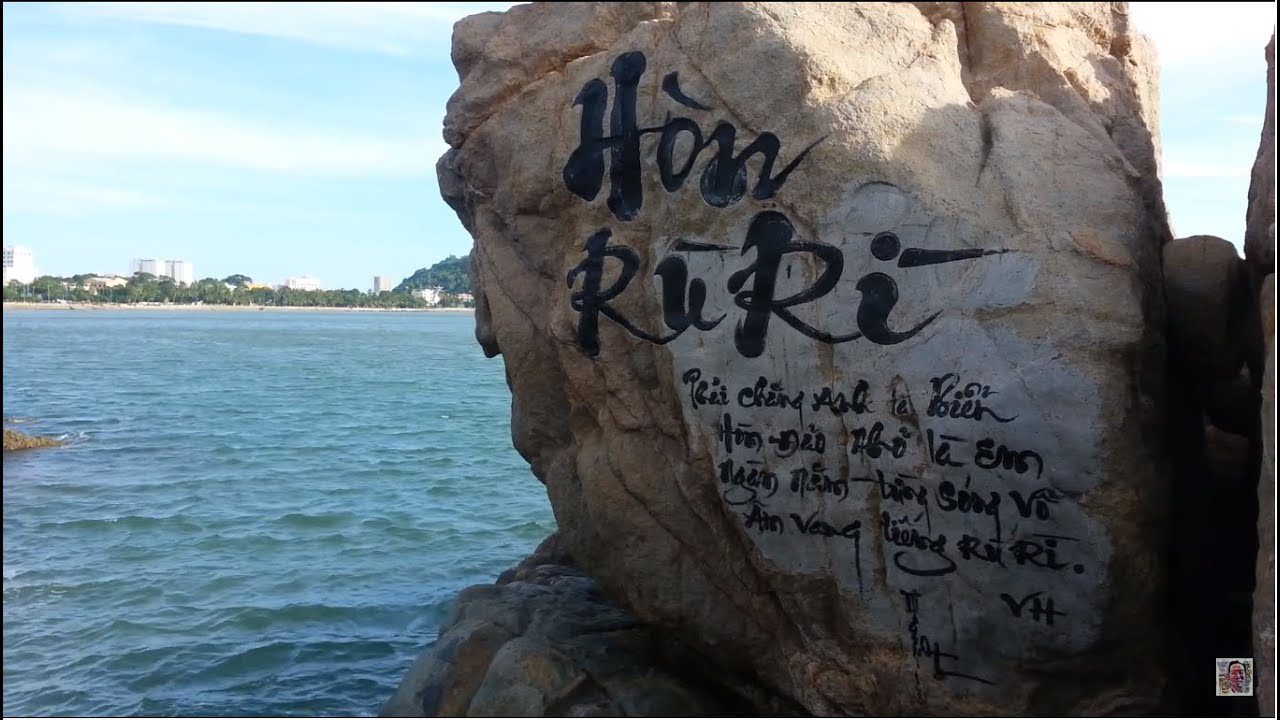 Hòn
Rù Rì
Phải chăng Anh là Biển
Hòn Đảo Nhỏ là Em
Ngàn Năm từng Sóng Vỗ
Âm Vang tiếng Rù Rì.
VH